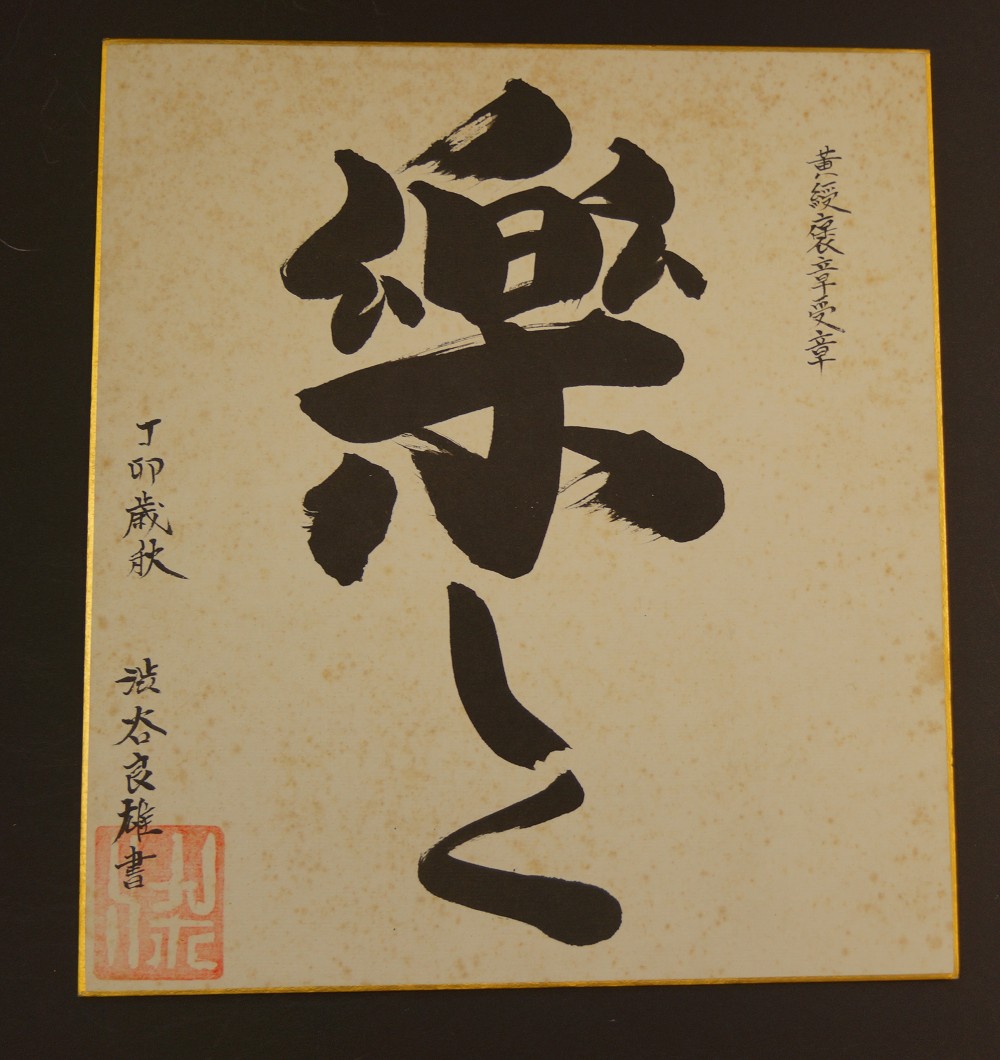 黄綬褒章受章
樂しく
丁卯歳秋
渋谷良雄書